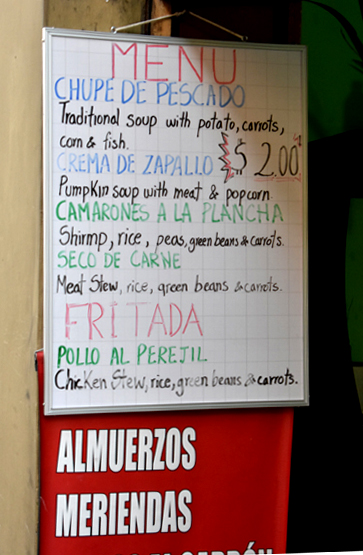 MENU
CHUPE DE PESCADO
Traditional soup with potato, carrots,
corn & fish.
$ 2.00
CREMA DE ZAPALLO
Pumpkin soup with meat & popcorn
CAMARONES A LA PLANCHA
Shirmp, rice, peas, green beans & carrots.
SECO DE CARNE
Meat Stew, rice, green beans & carrots.
FRITADA
POLLO AL PEREJIL
Chicken Stew, rice, green beans & carrots.
ALMUERZOS
MERIENDAS